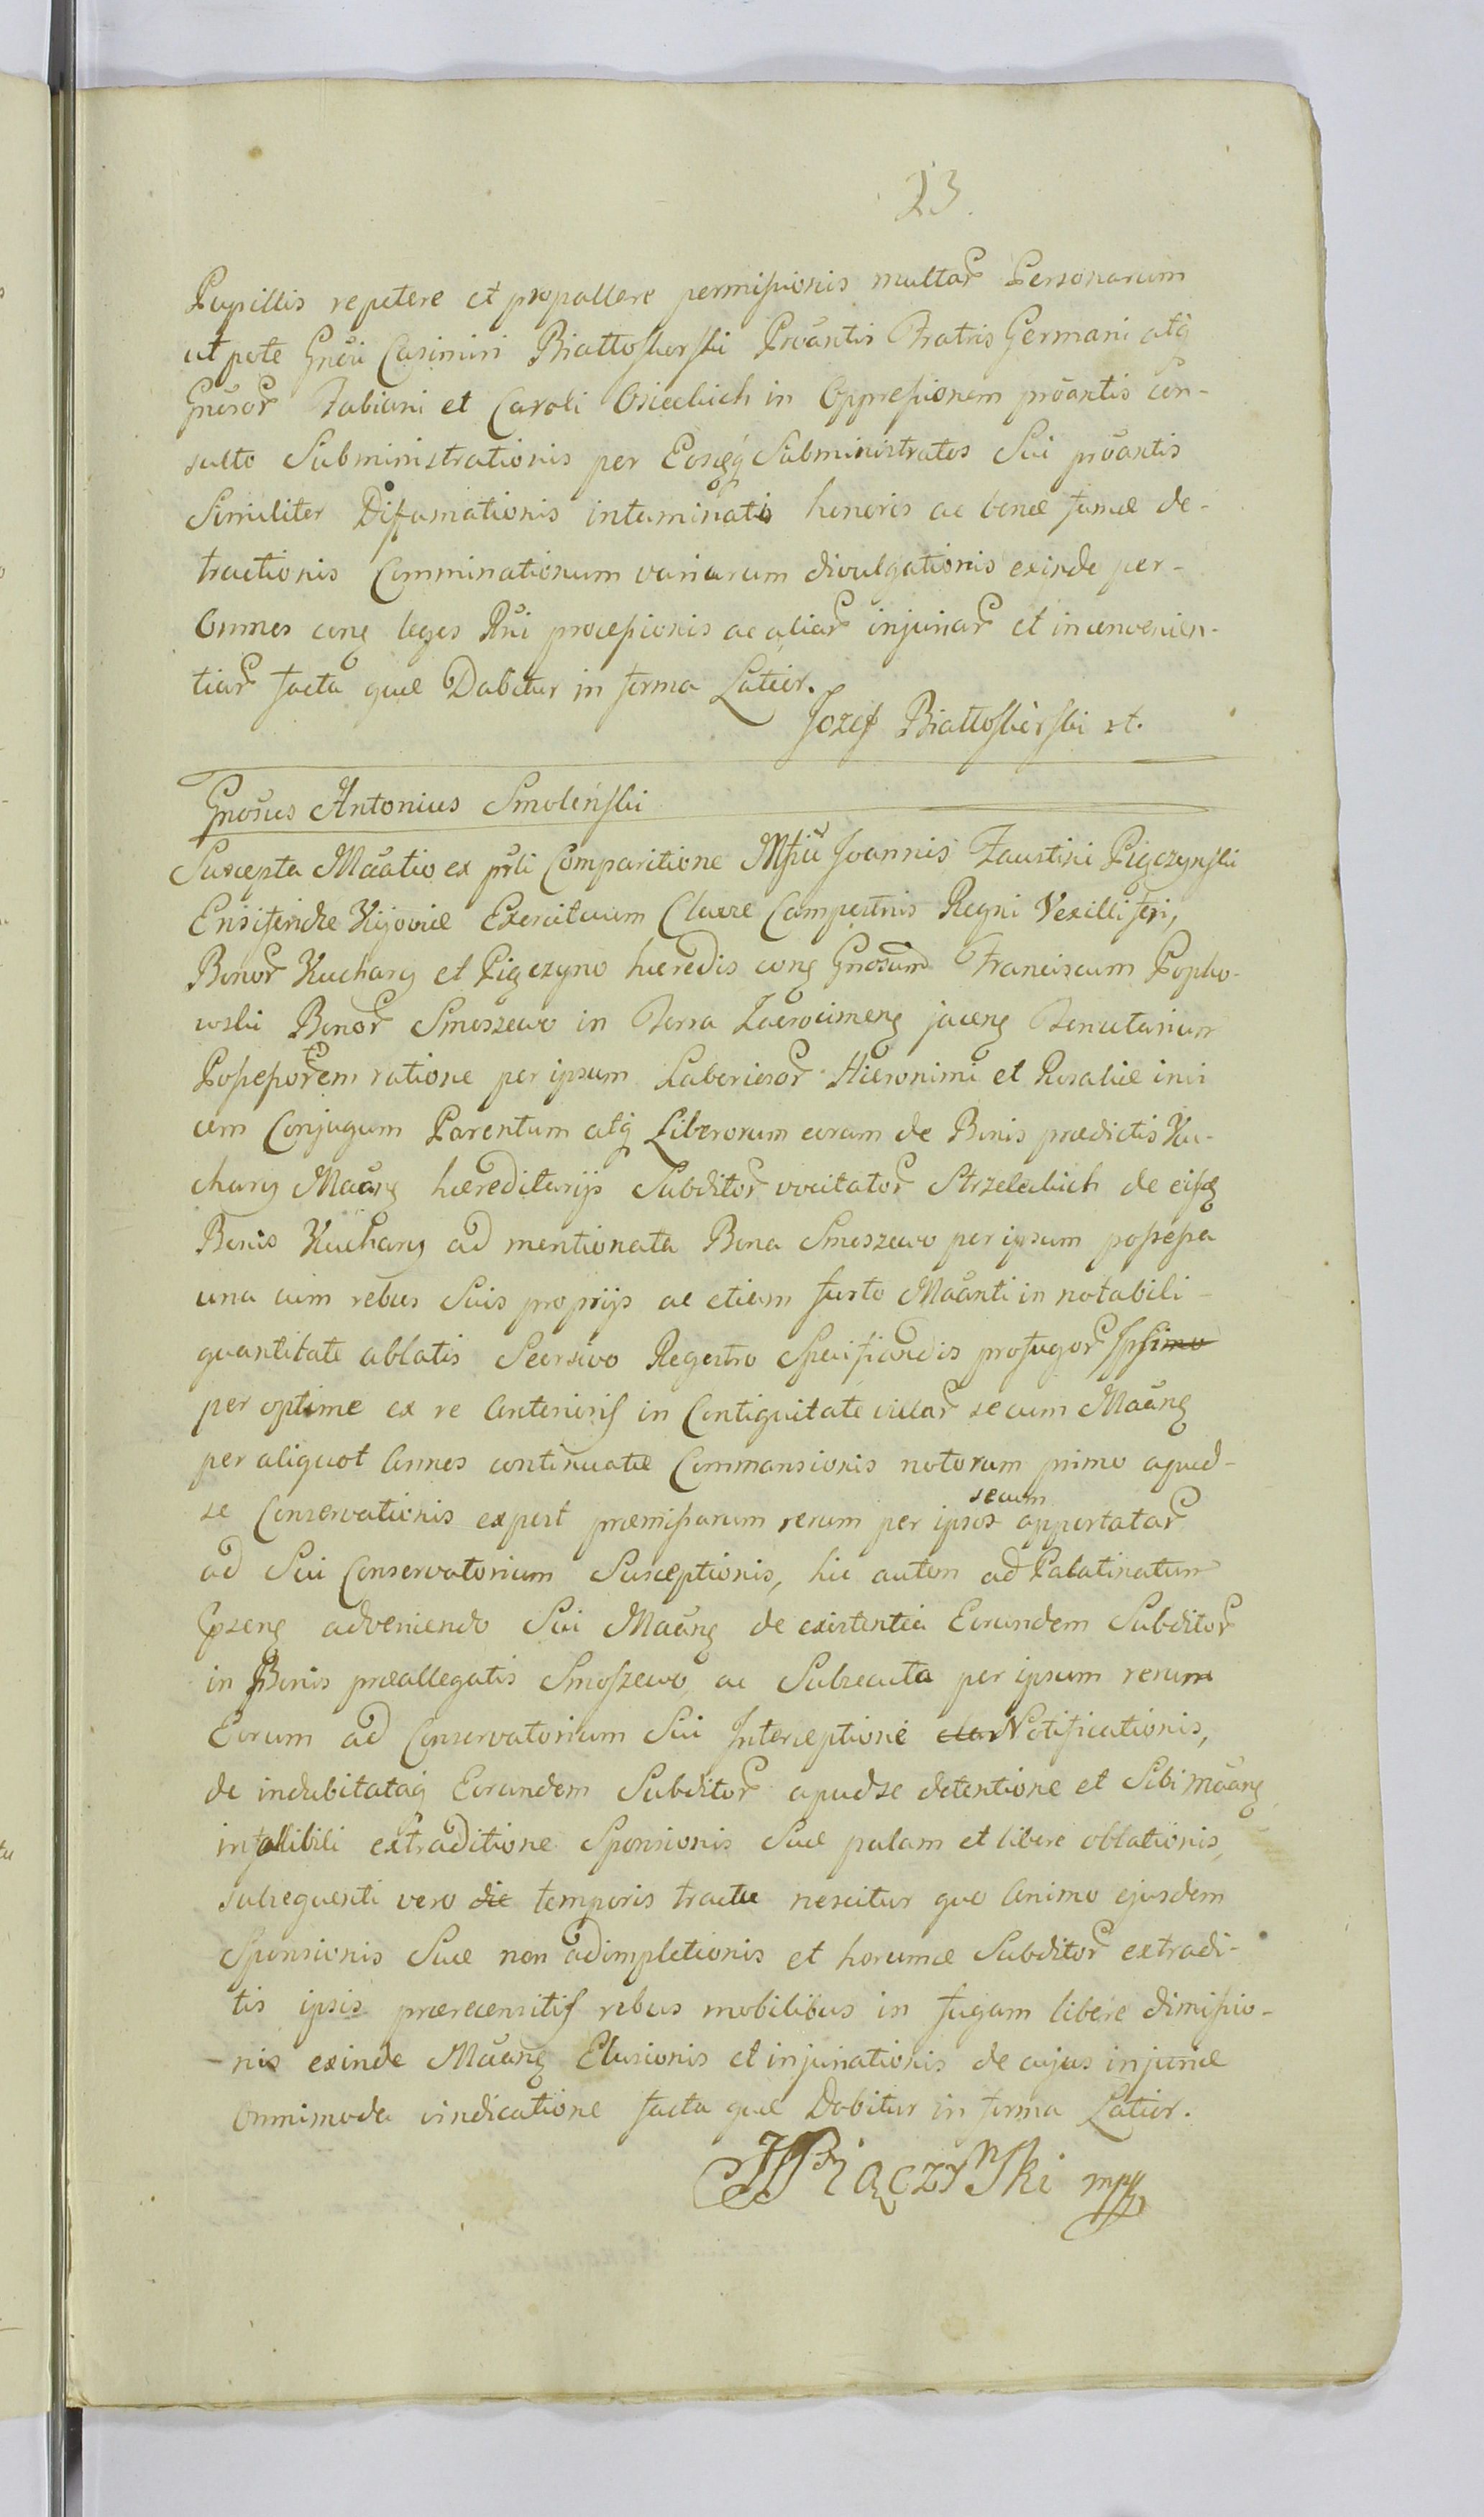 23.
Pupillis repetere et propallere permissionis multar Personarum
ut pote Gnei Casimiri Białłoskorski Proantis Fratris Germani atq
Gnesor Fabiani et Caroli Osieckich in Oppressionem proantis con-
sulto Subministrationis per Eosqq Subministratos Sui proantis
Similiter Diffamationis intaminatis honoris ac bonæ famæ de-
tractionis Comminationum variarum divulgationis exinde per-
Omnes conq leges Rni processionis ac aliar injuriar et inconvenien-
tiar facta quæ Dabitur in forma Latior.
Jozef Białłoskorski
Gnosus Antonius Smoleński
Suscepta Maatio ex prli Comparitione Joannis Faustini Pigczynski
Ensiferidæ Kijoviæ Exercituum Clavæ Campestris Regni Vexilliferi,
Bonor Kuchary et Pigczyno hæredis conq Gnosum Franciscum Popło-
wski Bonor Smoszewo in Terra Zacrocimenq jacenq Tenutarium
Possessorem ratione per ipsum Laboriosor Hieronimi et Rosaliæ invi
cem Conjugum Parentum atq Liberorum eorum de Bonis prædictis Ku-
chary Maanq hæreditarijs Subditor vocitator Strzeleckich de eisdq
Bonis Kuchary ad mentionata Bona Smoszewo per ipsum possessa
una cum rebus Suis proprijs ac etiam furto Maanti in notabili-
quantitate ablatis Seorsivo Regestro Specificandis profugor
per optime ex re Anterioris in Contiguitate villar secum Maanq
per aliquot Annos continuatæ Commansionis notorum primo apud-
se Conservationis expost præmissarum rerum per ipsos secum apportatar
ad Sui Conservatorium Susceptionis, hic autem ad Palatinatum
adveniendo Sui Maanq de existentia Eorundem Subditor
in Bonis præallegatis Smoszewo, ac Subsecuta per ipsum rerum
Eorum ad Conservatorium Sui Interceptione Notificationis,
de indubitataq Eorundem Subditor apud se detentione et Sibi maanq
infallibili extraditione Sponsionis Suæ palam et libere oblationis,
subsequenti vero die temporis tractu nescitur quo Animo ejusdem
Sponsionis Suæ non adimpletionis et horumce Subditor extradi-
tis ipsis prærecensitis rebus mobilibus in fugam libere dimissio-
nis exinde Maanq Elusionis et injuriationis de cujus injuriæ
Omnimoda vindicatione facta quæ Dabitur in forma Latior.
JPiączyński mpp